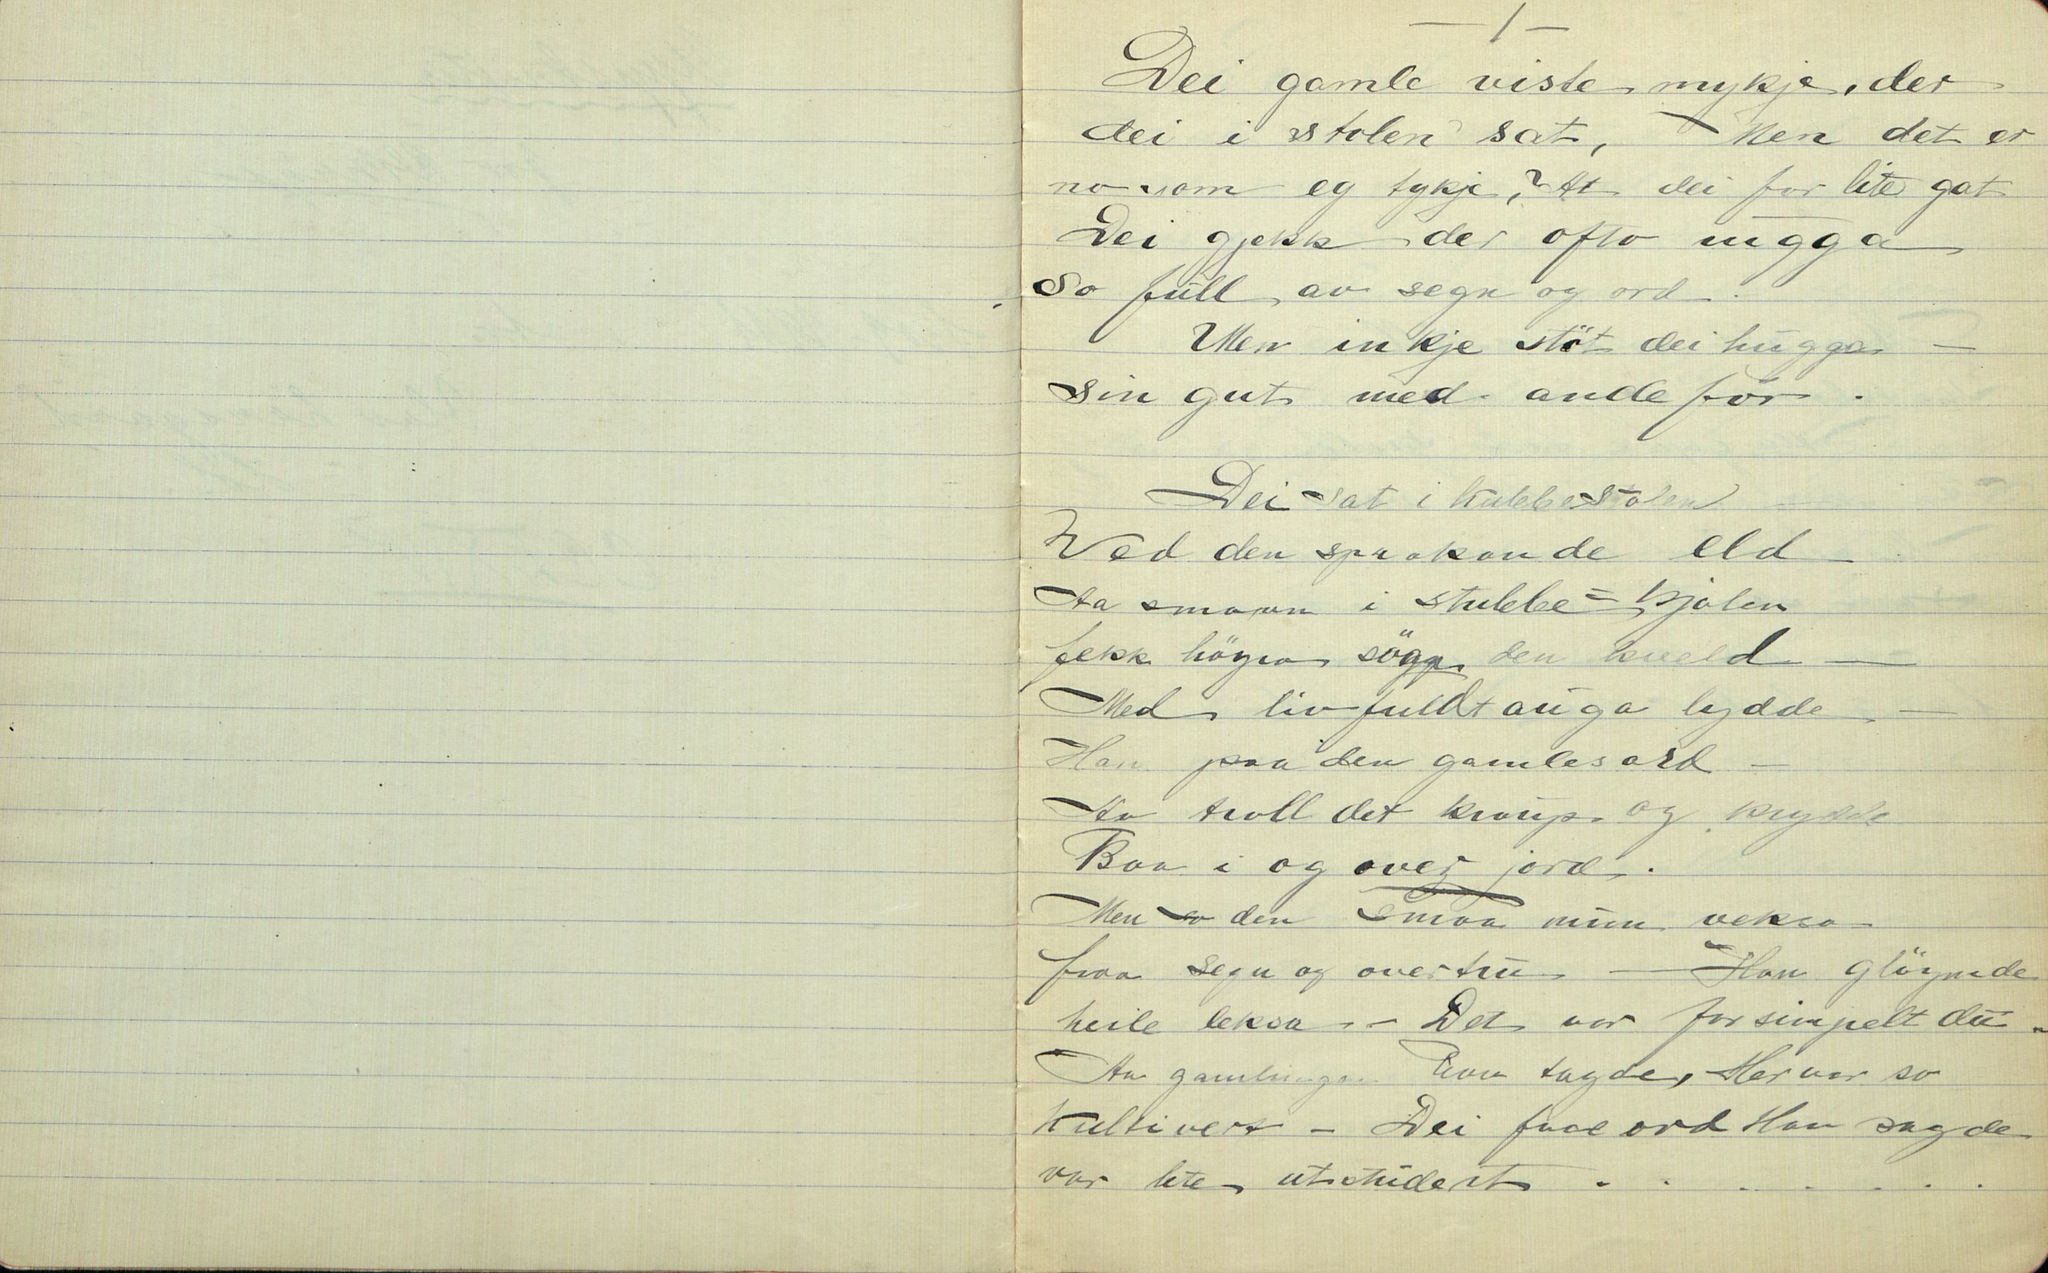 — 1 —
Dei gamle viste mykje, der
dei i stolen sat, Men det er
no som eg tykje, At dei for lite gat
Dei gjekk der ofto ũ̃gga
So full av segn og ord.
Men inkje stöt dei hugga —
sin gut med andeför.
Dei sat i kubbestolen
Ved den sprakande eld —
Aa smaaen i stubbe=kjolen
fekk höyra söga den kveld —
Med livfuldt auga lydde —
Han paa den gamles ord —
Aa troll det kraup og krydde
Baa i og over jord.
Men so den smaa mun veksa
fraa segn og overtru — Han glöymde
heile leksa — Det var for simpelt du —
Aa gamlingen han tagde, Her var so
kultivert — Dei faae ord Han sagde
var lite utstudert . . . . . . .